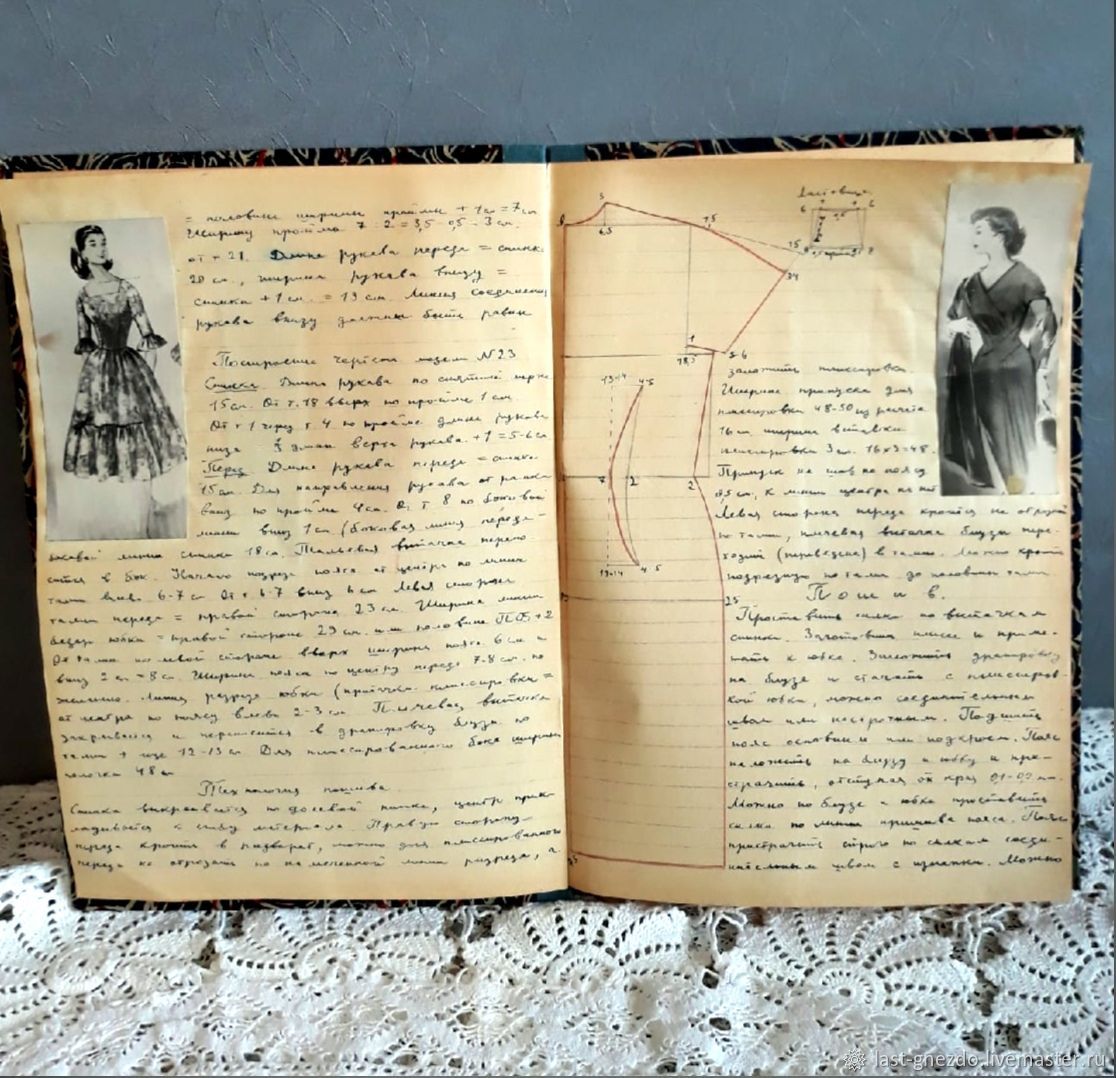 = половине ширины проймы + 1 см = 7 см
Ширину проймы 7 : 2 = 3,5 - 0,5 = 3 см.
от т 21. Длина рукава переда = спинке
20 см, ширина рукава внизу =
спинка + 1 см. = 19 см. Линия соединения
рукава внизу должны быть равны
Построение чертежа модели N 23
Спинка. Длина рукава по снятой мерке
15 см. От т. 18 вверх по пройме 1 см.
От т 1 через т. 4 по пройме длина рукава
низа длины верха рукава + 1 = 5-6 см
Перед. Длина рукава переда = спинке
15 см. Для направления рукава от
вниз по пройме 4 см. От т 8 по боковой
линии вниз 1 см (боковая линия переда =
боковой линии спинки 18 см. Тальевая вытачка
в бок. пояса от центра по линии
талии влево 6-7 см От т 6-7 вниз 6 см Левая сторона
талии переда = правой стороне 23 см. Ширина линии
бедер юбки = правой стороне 29 см. или половине ПОб + 2
От талии по левой стороне вверх ширина пояса 6 см и
вниз 2 см = 8 см. Ширина пояса по центру переда 7-8 см. по
желанию. Линия разреза юбки (
от центра по поясу влево 2-3 см Плечевая вытачка
закрывается и переносится в драпировку блузы по
талии + еще 12-13 см Для плиссированного бока ширина
48 см
Технология пошива.
Спинка выкраивается по долевой нитке, центр прик-
ладывается к сгибу материала. Правую сторону
переда кроить в разворот, можно для плиссированного
переда не отрезать по намеченной линии разреза, а
3
6,5
7,5
1,5
34
6
6
1
18,5
5-6
13-14
4-5
7
2
2
13-14
4-5
25
заложить плиссировку
Ширина припуска для
плиссировки 48-50 из расчета
16 см ширина вставки
плиссировки 3 см. 16 x 3 = 48.
Припуск на шов по поясу
0,5 см, к линии центра
Левая сторона переда кроится не отрезной
по талии, плечевая вытачка блузы пере-
ходит (переведена) в талию. Можно кроить
подрезную по талии до половины талии
Пошив.
Проставить силки по вытачкам
спинки. Заготовить плиссе и приме-
тать к юбке. Заложить драпировку
на блузе и стачать с плиссиров-
кой юбки, можно соединительным
швом или настрочным. Подшить
пояс основный или подкроем. Пояс
наложить на блузу и юбку и про-
страчить, отступая от края 0,1-0,2 см.
Можно по блузе и юбке проставить
силки по линии притыва пояса. Пояс
пристрачить строго по силкам соеди-
нительным швом с изнанки. Можно
last-gnezdo.livemaster.ru